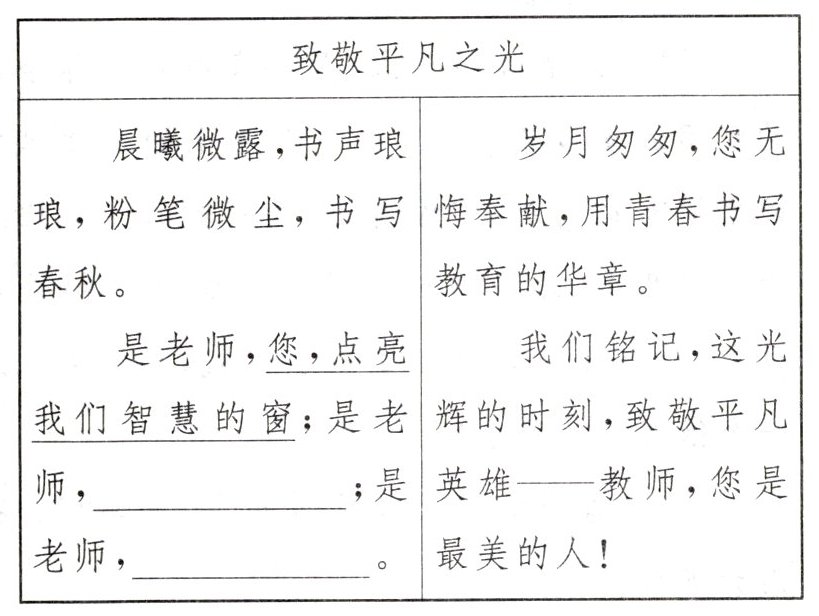 致敬平凡之光
晨曦微露,书声琅
琅,粉笔微尘,书写
春秋。
是老师,您,点亮
我们智慧的窗;是老
师,____________;是
老师,____________。
岁月匆匆,您无
悔奉献,用青春书写
教育的华章。
我们铭记,这光
辉的时刻,致敬平凡
英雄——教师,您是
最美的人!